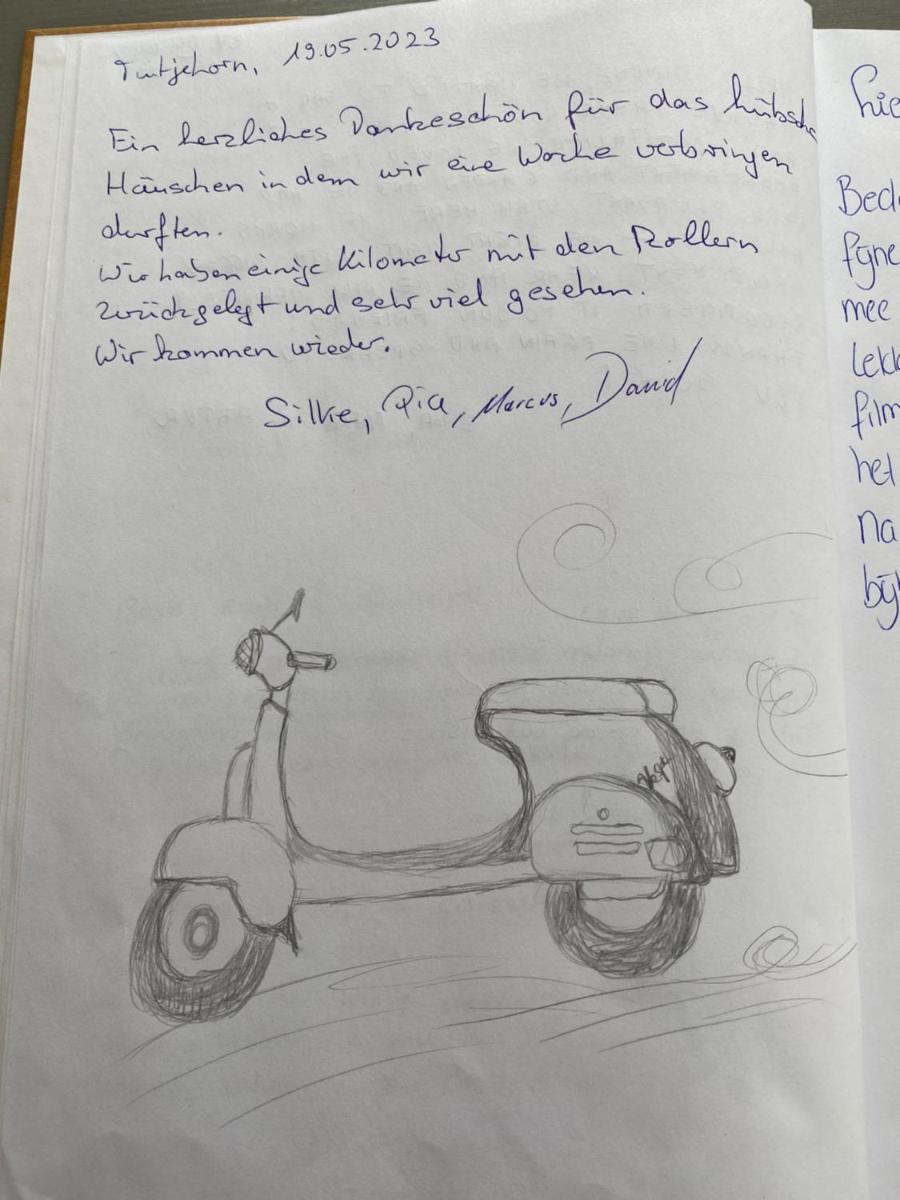 Tuitjehorn, 19.05.2023
Ein herzliches Dankeschön für das hübsche
Häuschen in dem wir eine Woche verbringen
durften.
Wir haben einige Kilometer mit den Rollern
zurückgelegt und sehr viel gesehen.
Wir kommen wieder.
Silke, Pia, Marcus, David
hie
Bed
fijne
mee
lekk
film
het
na
bij